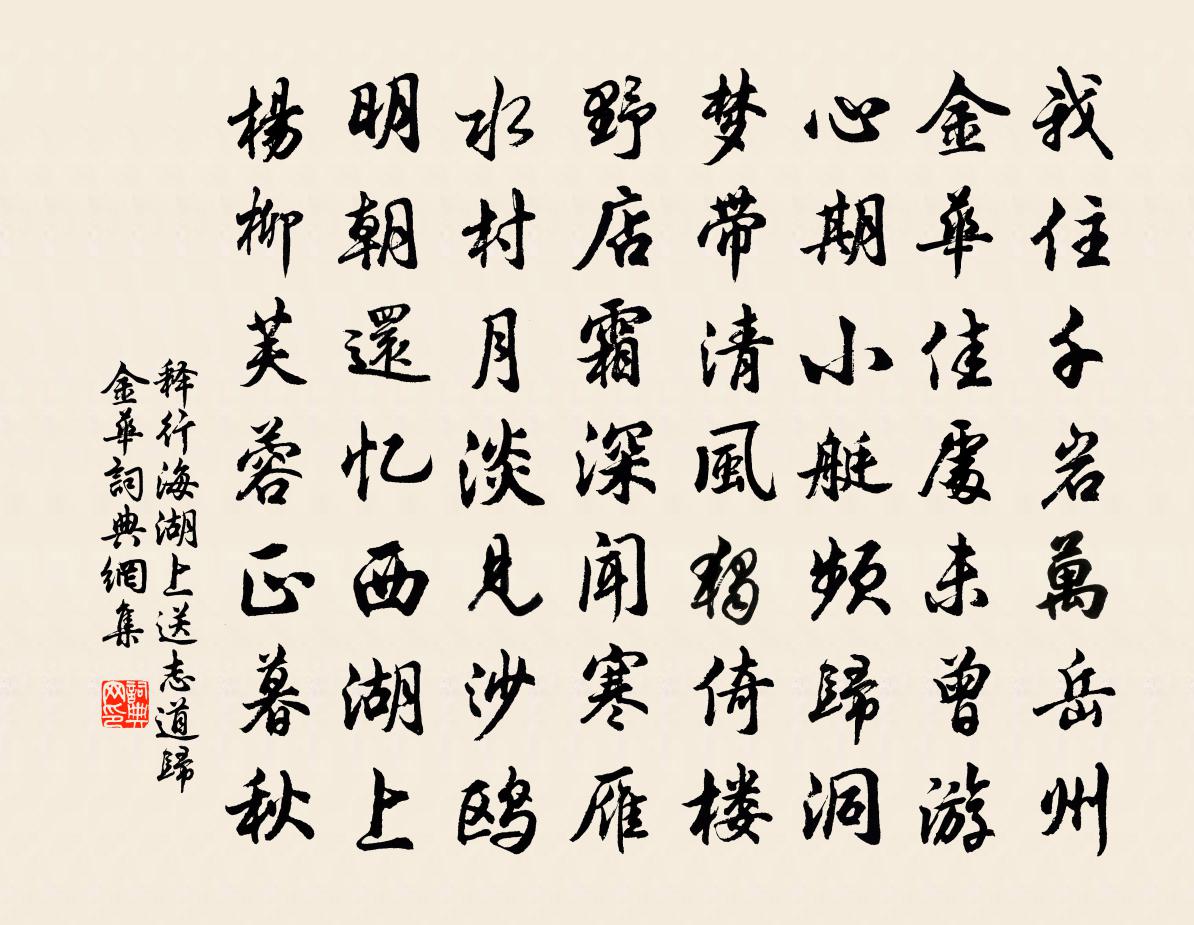 我住千岩萬岳州
金華佳處未曾游
心期小艇頻歸洞
梦带清風独倚楼
野店霜深闻寒雁
水村月淡见沙鸥
明朝還忆西湖上
楊柳芙蓉正暮秋
释行海湖上送志道歸
金華詞典網集
詞典网印